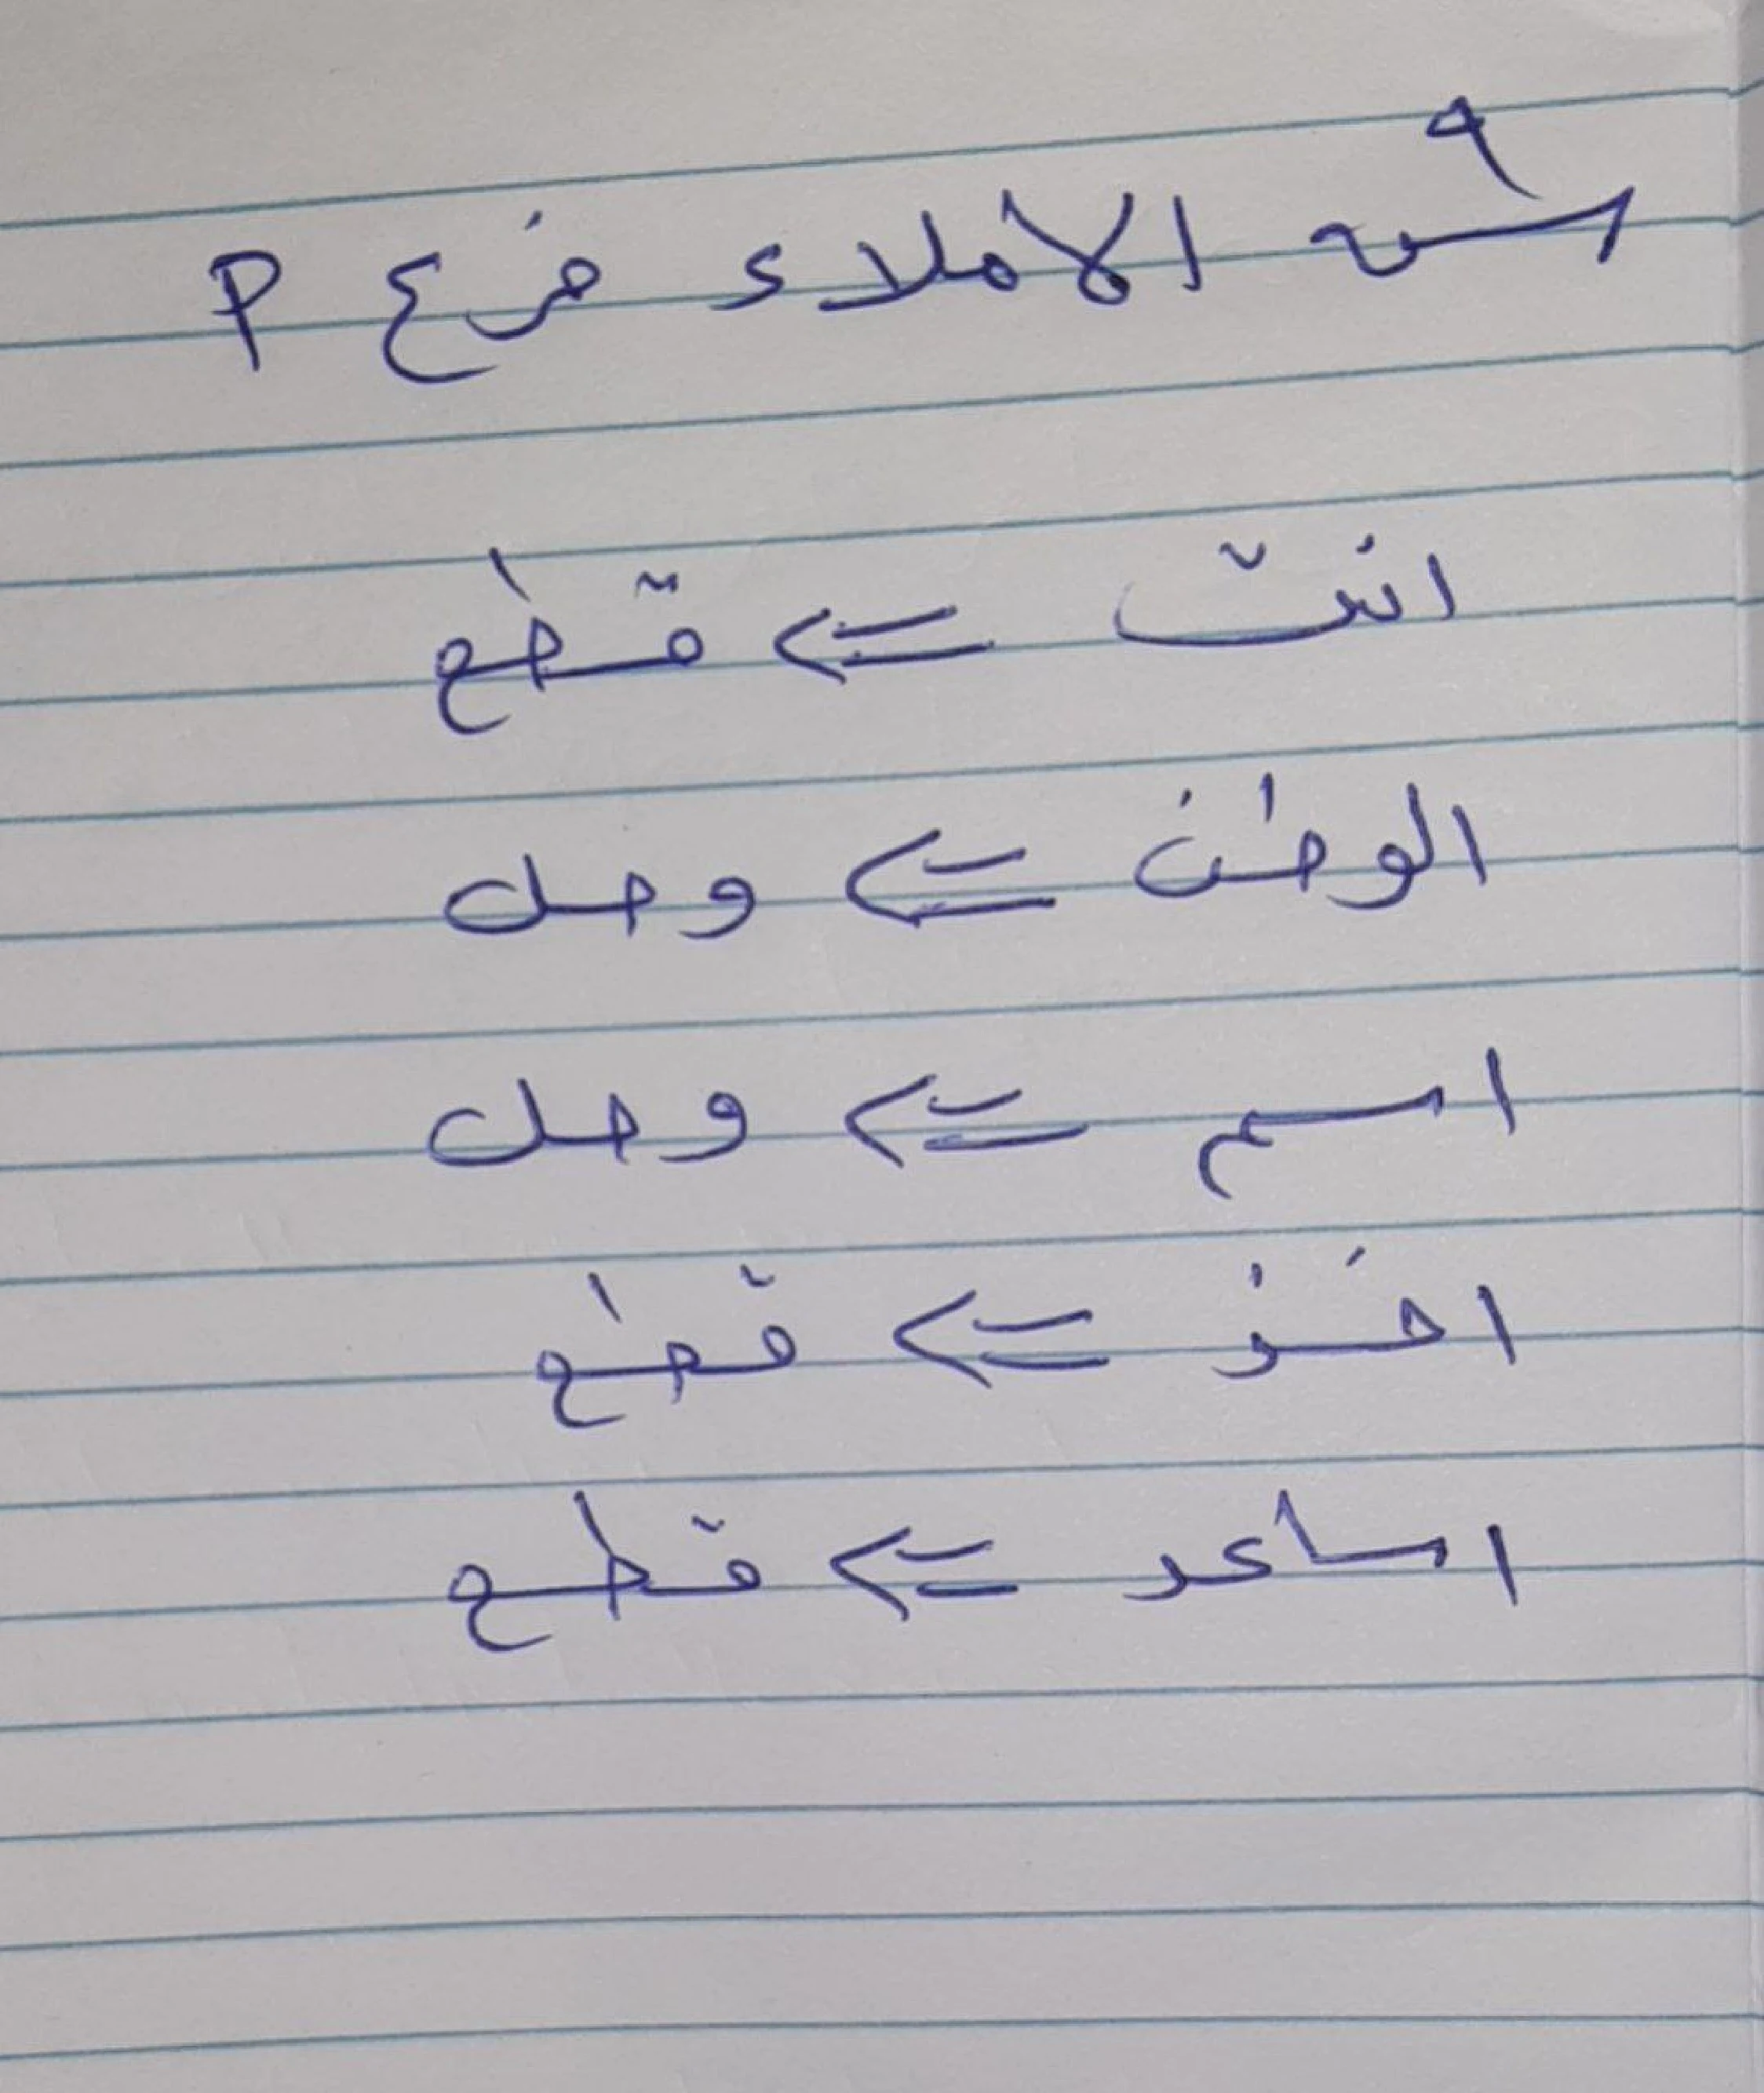 س٩ الاملاء فرع P
انت <= قطع
الوطن <= وصل
اسم <= وصل
اخذ <= قطع
اساعد <= قطع